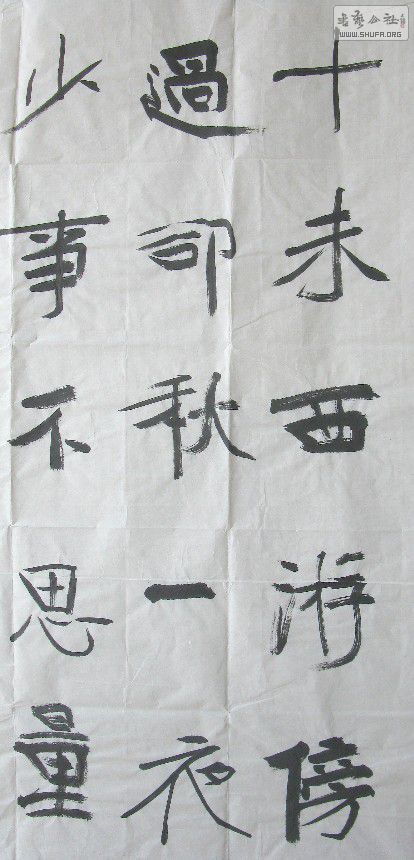 書藝公社
WWW.SHUFA.ORG
十未西游傍
過却秋一夜
少事不思量